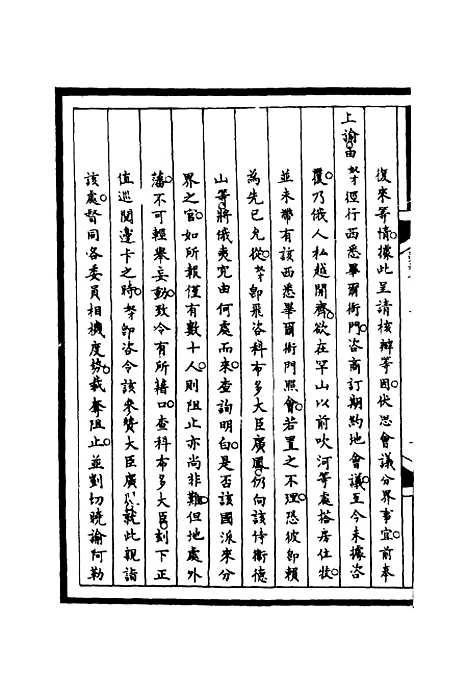 復來等情據此呈請核辦等因伏思會議分界事宜前奉
上諭由奴才逕行西悉畢爾衙門咨商訂期約地會議至今未據咨
覆乃俄人私越開齊欲在罕山以前吹河等處搭房住牧
並未帶有該西悉畢爾衙門照會若置之不理恐彼卽賴
為先已允從奴才卽飛咨科布多大臣廣鳳仍向該侍衛德
山等將俄夷究由何處而來查詢明白是否該國派來分
界之官如所報僅有數十人則阻止亦尚非難但地處外
藩不可輕舉妄動致令有所藉口查科布多大臣刻下正
值巡閱邊卡之時奴才卽咨令該參贊大臣廣鳳就此親詣
該處督同各委員相機度勢截奪阻止並剴切曉諭阿勒